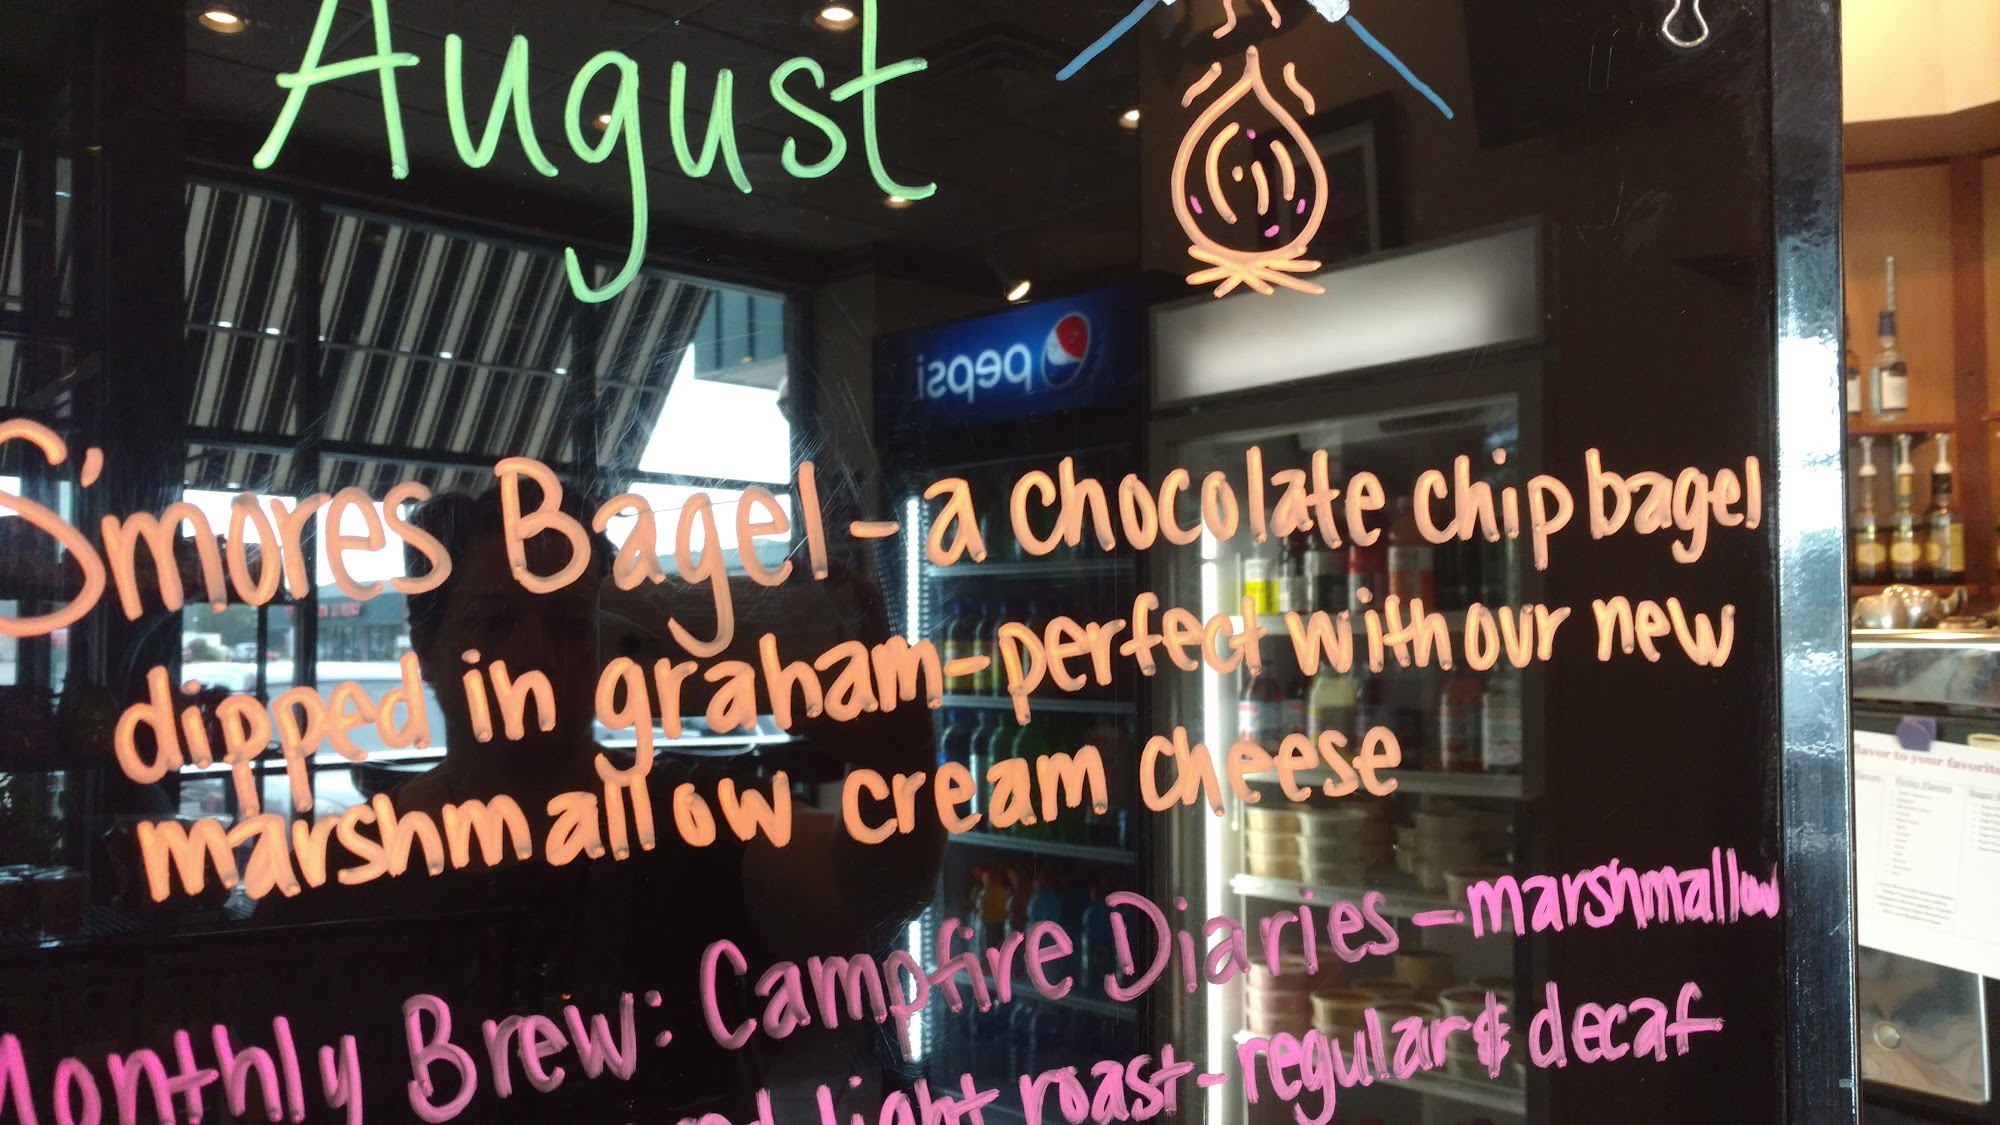 August
pepsi
S'mores Bagel - a chocolate chip bagel
dipped in graham - perfect with our new
marshmallow cream cheese
Monthly Brew: Campfire Diaries - marshmallow
light roast - regular & decaf
flavor to your favorite